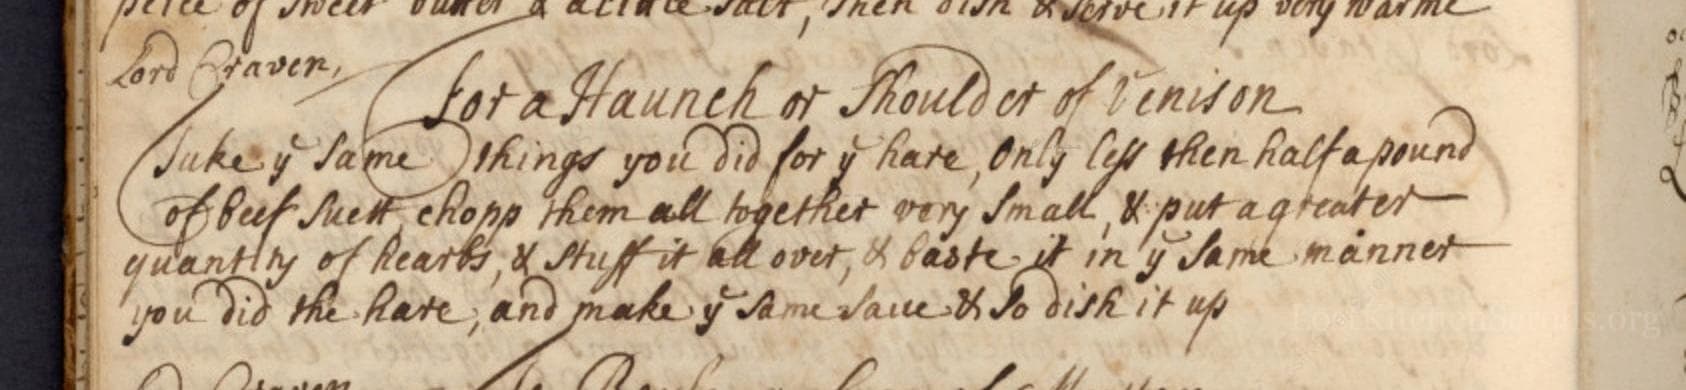 peice of sweet butter & a little salt, then dish & serve it up very warme
Lord Craven,
For a Haunch or Shoulder of Venison
Take yͤ same things you did for yͤ hare, Only less then half a pound
of beef suett, chopp them all together very small, & put a greater
quantity of hearbs, & stuff it all over, & baste it in yͤ same manner
you did the hare, and make yͤ same sauc & so dish it up
LostKitchenScrolls.org
Lord Craven